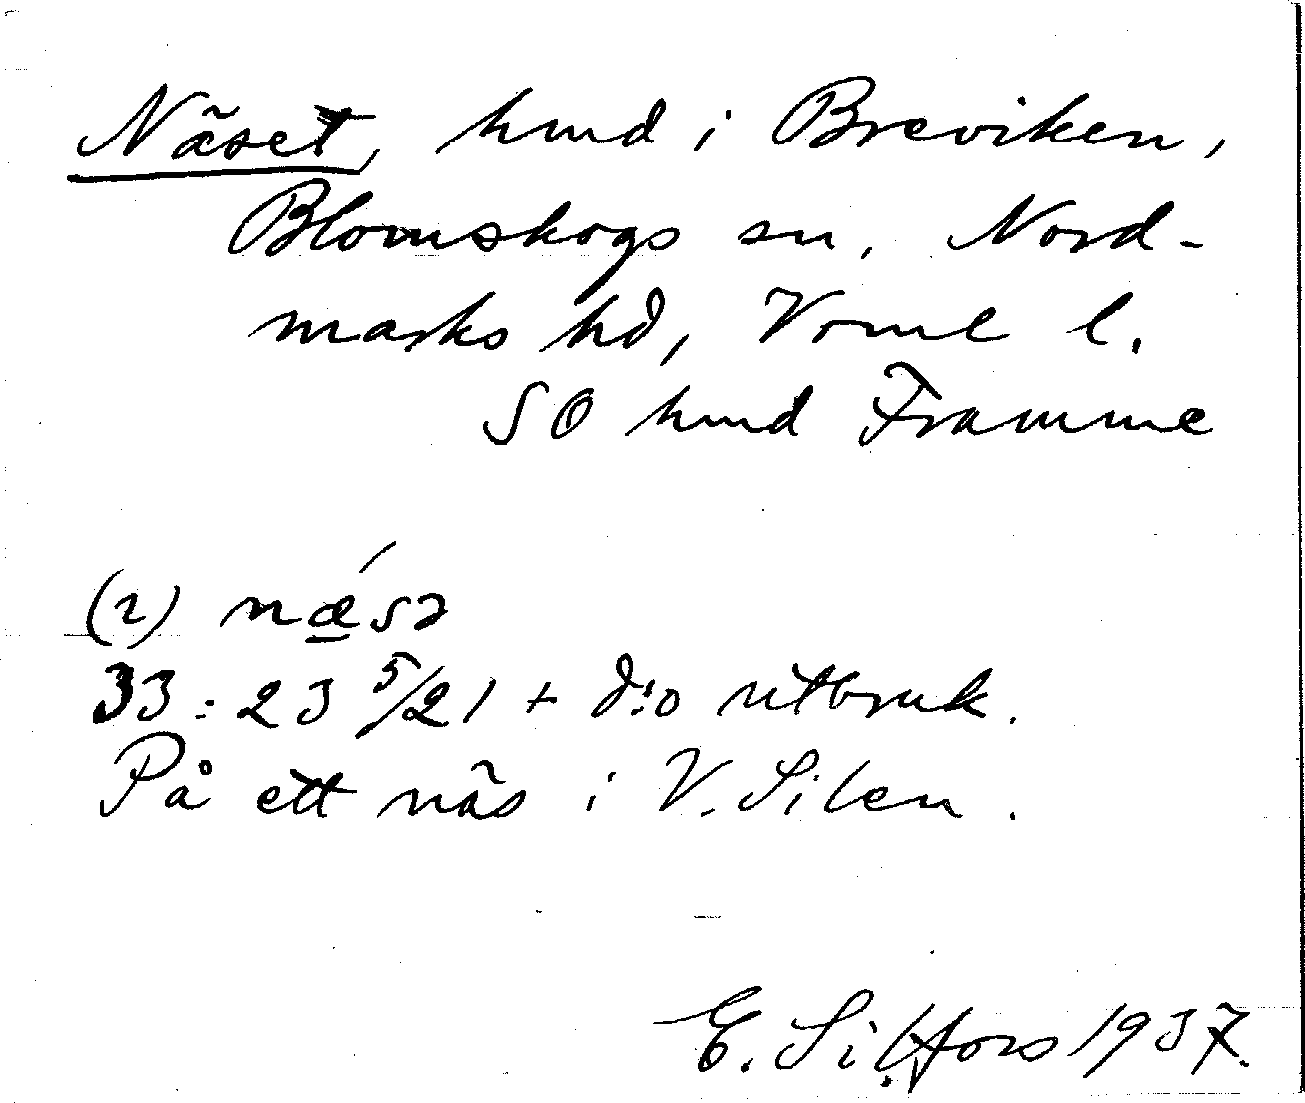 Näset, hmd i Breviken,
Blomskogs sn, Nord-
marks hd, Vrml l.
SO hmd Framme
(2) næ´sə
33:23 5/21 + d:o utbruk.
På ett näs i V. Silen.
E. Silfors 1937.